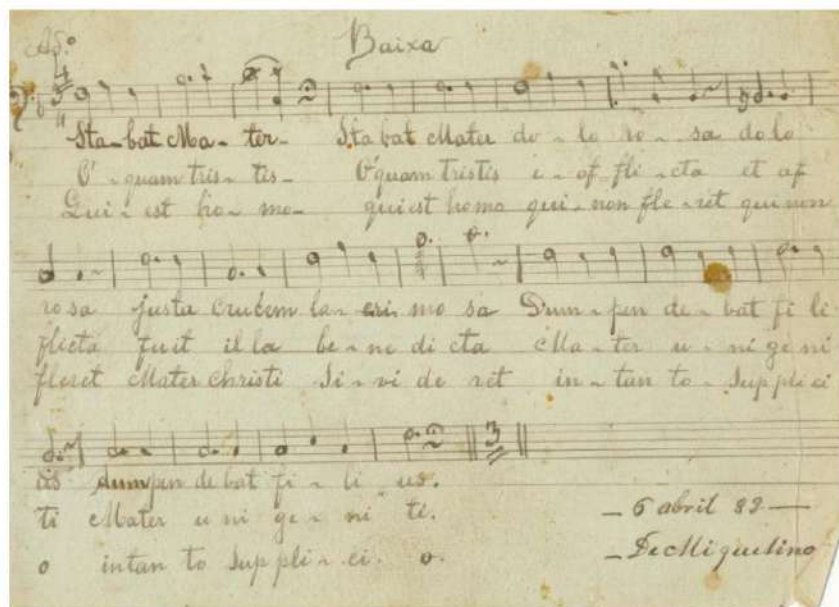 Baixa
Sta-bat Ma-ter- Sta bat Mater do-lo ro-sa dolo
O'-quam tris-tis- O'quam tristis e-af fli-cta et af
Qui-est ho-mo- qui est homo qui-non fle-ret qui non
ro sa justa crucem la-cri mo sa Dum-pen de-bat fi li
flicta fuit il la be-ne di cta Ma-ter u-ni ge ni
fleret Mater Christi Si-vi de ret in-tan to-Suppli ci
us dum pen de bat fi-li us.
ti Mater u ni ge-ni ti.
o in tan to Sup pli-ci. o.
- 6 abril 89 -
- De Miguelino